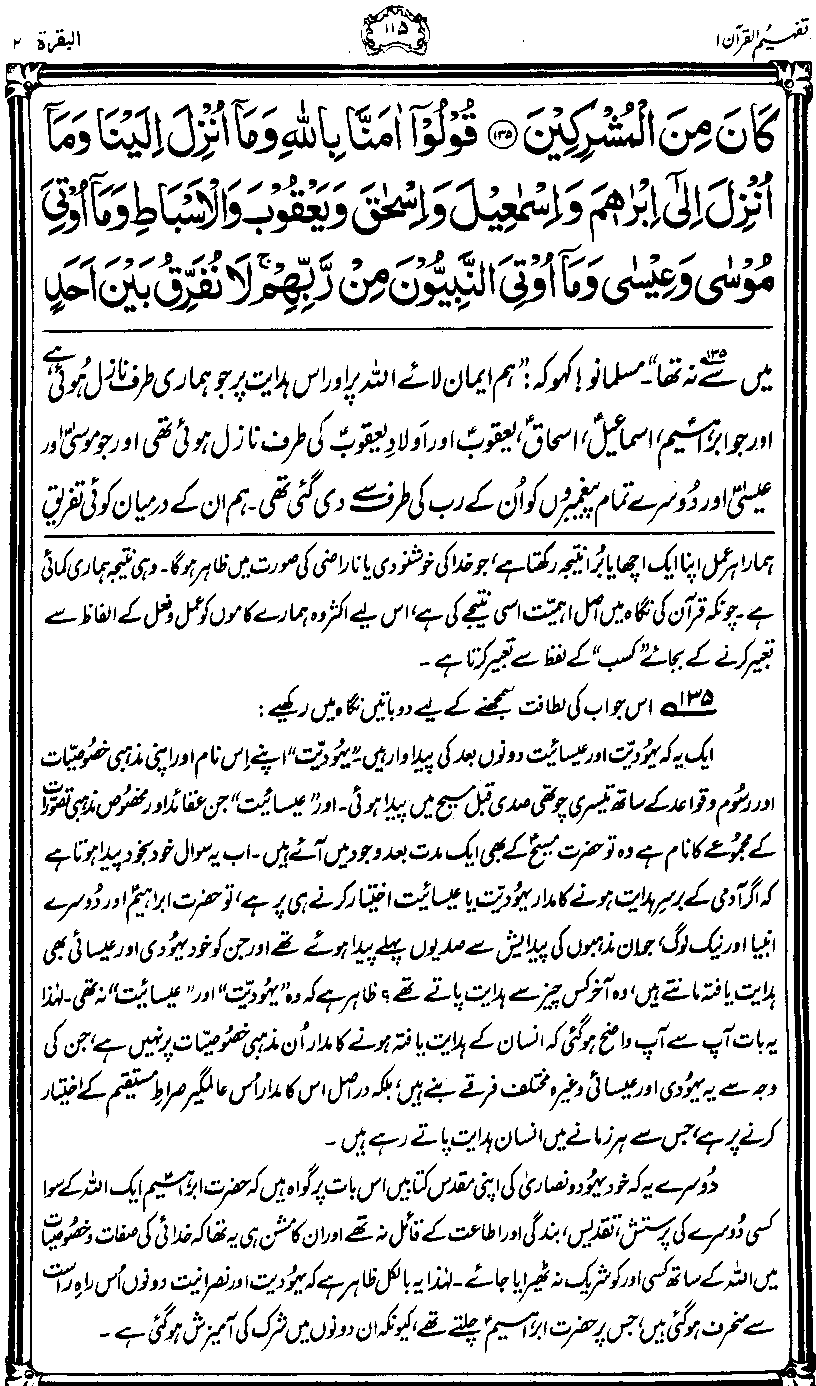 تفہیم القرآن ۱
۱۱۵
البقرۃ ۲
كَانَ مِنَ الْمُشْرِكِيْنَ ﴿۱۳۵﴾ قُوْلُوْٓا اٰمَنَّا بِاللّٰهِ وَمَآ اُنْزِلَ اِلَيْنَا وَمَآ
اُنْزِلَ اِلٰٓى اِبْرٰهٖمَ وَاِسْمٰعِيْلَ وَاِسْحٰقَ وَيَعْقُوْبَ وَالْاَسْبَاطِ وَمَآ اُوْتِيَ
مُوْسٰى وَعِيْسٰى وَمَآ اُوْتِيَ النَّبِيُّوْنَ مِنْ رَّبِّهِمْ ۚ لَا نُفَرِّقُ بَيْنَ اَحَدٍ
میں سے نہ تھا۱۳۵"۔ مسلمانو! کہو کہ: "ہم ایمان لائے اللہ پر اور اس ہدایت پر جو ہماری طرف نازل ہوئی ہے
اور جو ابراہیمؑ، اسماعیلؑ، اسحاقؑ، یعقوبؑ اور اَولادِ یعقوبؑ کی طرف نازل ہوئی تھی اور جو موسیٰؑ اور
عیسیٰؑ اور دُوسرے تمام پیغمبروں کو اُن کے رب کی طرف سے دی گئی تھی۔ ہم ان کے درمیان کوئی تفریق
ہمارا ہر عمل اپنا ایک اچھا یا بُرا نتیجہ رکھتا ہے، جو خدا کی خوشنودی یا ناراضی کی صورت میں ظاہر ہوگا۔ وہی نتیجہ ہماری کمائی
ہے۔ چونکہ قرآن کی نگاہ میں اصل اہمیّت اسی نتیجے کی ہے، اس لیے اکثر وہ ہمارے کاموں کو عمل و فعل کے الفاظ سے
تعبیر کرنے کے بجائے "کسب" کے لفظ سے تعبیر کرتا ہے۔
۱۳۵ اس جواب کی لطافت سمجھنے کے لیے دو باتیں نگاہ میں رکھیے:
ایک یہ کہ یہُودیّت اور عیسائیت دونوں بعد کی پیداوار ہیں۔ "یہُودیّت" اپنے اِس نام اور اپنی مذہبی خصُوصیّات
اور رسُوم و قواعد کے ساتھ تیسری چوتھی صدی قبل مسیح میں پیدا ہوئی۔ اور "عیسائیت" جن عقائد اور مخصُوص مذہبی تصوّرات
کے مجمُوعے کا نام ہے وہ تو حضرت مسیحؑ کے بھی ایک مدت بعد وجود میں آئے ہیں۔ اب یہ سوال خود بخود پیدا ہوتا ہے
کہ اگر آدمی کے برسرِ ہدایت ہونے کا مدار یہُودیّت یا عیسائیت اختیار کرنے ہی پر ہے، تو حضرت ابراہیمؑ اور دُوسرے
انبیا اور نیک لوگ، جو ان مذہبوں کی پیدایش سے صدیوں پہلے پیدا ہوئے تھے اور جن کو خود یہُودی اور عیسائی بھی
ہدایت یافتہ مانتے ہیں، وہ آخر کس چیز سے ہدایت پاتے تھے؟ ظاہر ہے کہ وہ "یہُودیّت" اور "عیسائیت" نہ تھی۔ لہٰذا
یہ بات آپ سے آپ واضح ہوگئی کہ انسان کے ہدایت یافتہ ہونے کا مدار اُن مذہبی خصُوصیّات پر نہیں ہے، جن کی
وجہ سے یہ یہُودی اور عیسائی وغیرہ مختلف فرقے بنے ہیں، بلکہ دراصل اس کا مدار اُس عالمگیر صراطِ مستقیم کے اختیار
کرنے پر ہے، جس سے ہر زمانے میں انسان ہدایت پاتے رہے ہیں۔
دُوسرے یہ کہ خود یہُود و نصاریٰ کی اپنی مقدس کتابیں اس بات پر گواہ ہیں کہ حضرت ابراہیمؑ ایک اللہ کے سوا
کسی دُوسرے کی پرستش، تقدیس، بندگی اور اطاعت کے قائل نہ تھے اور ان کا مشن ہی یہ تھا کہ خدائی کی صفات و خصُوصیات
میں اللہ کے ساتھ کسی اور کو شریک نہ ٹھیرایا جائے۔ لہٰذا یہ بالکل ظاہر ہے کہ یہُودیت اور نصرانیت دونوں اُس راہِ راست
سے منحرف ہوگئی ہیں، جس پر حضرت ابراہیمؑ چلتے تھے، کیونکہ ان دونوں میں شرک کی آمیزش ہوگئی ہے۔